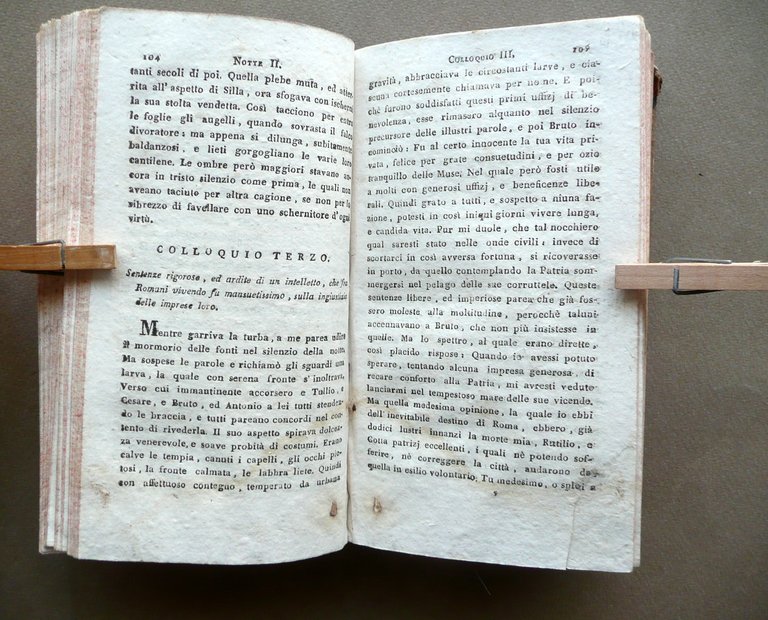 104 NOTTE II.
tanti secoli di poi. Quella plebe muta, ed atter-
rita all'aspetto di Silla, ora sfogava con ischerni
la sua stolta vendetta. Così tacciono per entro
le foglie gli augelli, quando sovrasta il falco
divoratore: ma appena si dilunga, subitamente
baldanzosi, e lieti gorgogliano le varie loro
cantilene. Le ombre però maggiori stavano an-
cora in tristo silenzio come prima, le quali non
aveano taciute per altra cagione, se non per lo
ribrezzo di favellare con uno schernitore d'ogni
virtù.
COLLOQUIO TERZO.
Sentenze rigorose, ed ardite di un intelletto, che fra
Romani vivendo fu mansuetissimo, sulla ingiustizia
delle imprese loro.
Mentre garriva la turba, a me parea udire
il mormorio delle fonti nel silenzio della notte.
Ma sospese le parole e richiamò gli sguardi una
larva, la quale con serena fronte s'inoltrava.
Verso cui immantinente accorsero e Tullio, e
Cesare, e Bruto, ed Antonio a lei tutti stenden-
do le braccia, e tutti pareano concordi nel con-
tento di rivederla. Il suo aspetto spirava dolcez-
za venerevole, e soave probità di costumi. Erano
calve le tempia, canuti i capelli, gli occhi pie-
tosi, la fronte calmata, le labbra liete. Quindi
con affettuoso contegno, temperato da urbana
COLLOQUIO III. 105
gravità, abbracciava le circostanti larve, e cia-
scuna cortesemente chiamava per nome. E poi-
chè furono soddisfatti questi primi uffizj di be-
nevolenza, esse rimasero alquanto nel silenzio
precursore delle illustri parole, e poi Bruto in-
cominciò: Fu al certo innocente la tua vita pri-
vata, felice per grate consuetudini, e per ozio
tranquillo delle Muse. Nel quale però fosti utile
a molti con generosi uffizj, e beneficenze libe-
rali. Quindi grato a tutti, e sospetto a niuna fa-
zione, potesti in così iniqui giorni vivere lunga,
e candida vita. Pur mi duole, che tal nocchiero
qual saresti stato nelle onde civili, invece di
scortarci in così avversa fortuna, si ricoverasse
in porto, da quello contemplando la Patria som-
mergersi nel pelago delle sue corruttele. Queste
sentenze libere, ed imperiose parea che già fos-
sero moleste alla moltitudine, perocchè taluni
accennavano a Bruto, che non più insistesse in
quelle. Ma lo spettro, al quale erano dirette,
così placido rispose: Quando io avessi potuto
sperare, tentando alcuna impresa generosa, di
recare conforto alla Patria, mi avresti veduto
lanciarmi nel tempestoso mare delle sue vicende.
Ma quella medesima opinione, la quale io ebbi
dell'inevitabile destino di Roma, ebbero, già
dodici lustri innanzi la morte mia, Rutilio, e
Cotta patrizj eccellenti, i quali nè potendo sof-
ferire, nè correggere la città, andarono da
quella in esilio volontario. Tu medesimo, o